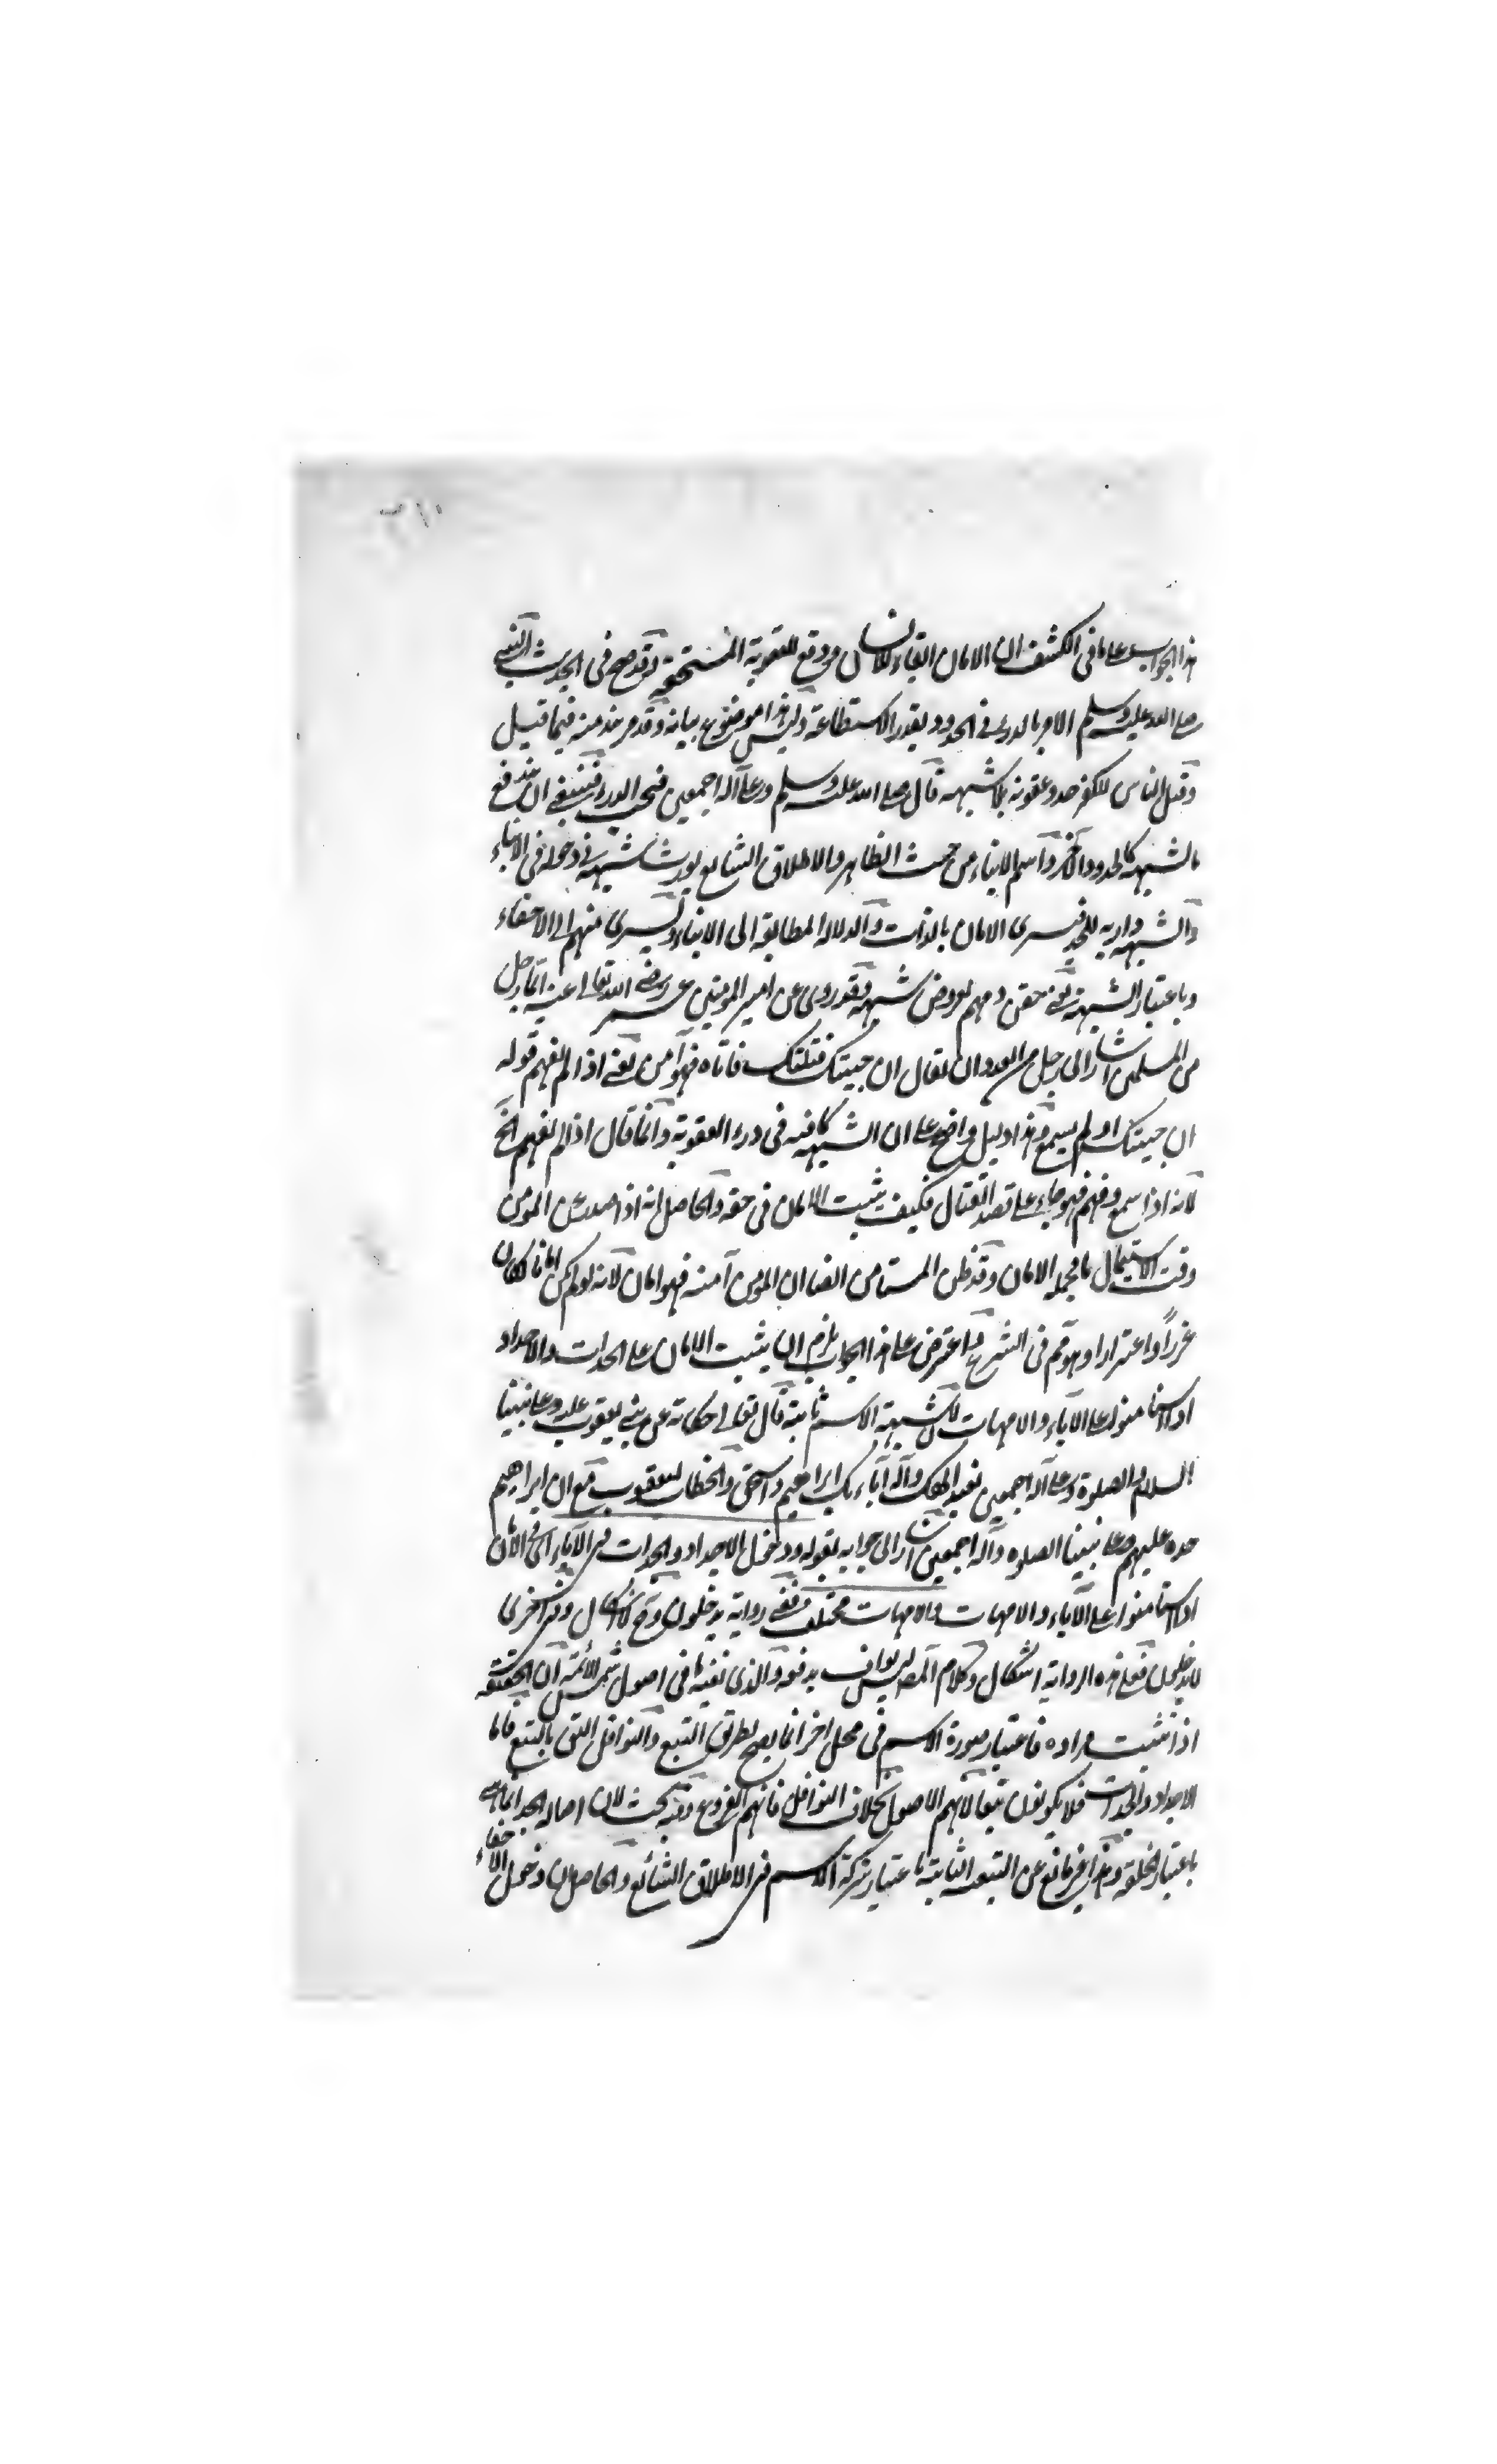 هذا الجواب على ما في الكشف ان الامان القاء للانسان ودفع للعقوبة المستحقة وقد صح في الحديث النبي
صلى الله عليه وسلم الامر بالدرء في الحدود بقدر الاستطاعة وليس هذا موضوع بيانه وقد مر نبذ منه فيما قبل
وقتل الناس للكفر حد وعقوبة بلا شبهة قال صلى الله عليه وسلم وعلى آله اجمعين فيجب الدرء فينبغي ان يندفع
بالشبهة كالحدود الاخر واسم الابناء من حيث الظاهر والاطلاق الشايع يورث شبهة في دخوله في الابناء
والشبهة دارية للحد فيسري الامان بالذات والدلالة المطابقة الى الابناء ويسرى منهم الى الاحفاد
وباعتبار الشبهة يعني حقن دمهم لعروض شبهة وقد روى عن امير المؤمنين عمر رضي الله تعالى عنه ايما رجل
من المسلمين اشار الى رجل من العدو ان تعال ان جئتك قتلتك فاتاه فهو آمن يعني اذا لم يفهم قوله
ان جئتك او لم يسمع وهذا دليل واضح على ان الشبهة كافية في درء العقوبة وانما قال اذا لم يفهم الخ
لانه اذا سمع وفهم فهو جاء على قصد القتال فكيف يثبت الامان في حقه والحاصل انه اذا صدر عن المؤمن
وقت الاستيمال ما يحمله الامان وقد ظن المستامن ايضا ان المؤمن آمنه فهو امان لانه لو لم يكن امانا لكان
غررا واغترارا وهو محرم في الشرع واعترض على هذا الجواب يلزم ان يثبت الامان على الجدات والاجداد
اذا استامنوا على الآباء والامهات لان شبهة الاسم ثابتة قال تعالى حكاية عن بني يعقوب عليه وعلى نبينا
السلام والصلوة وعلى آله اجمعين نعبد الهك واله آباءك ابراهيم واسحق والخطاب ليعقوب مع ان ابراهيم
جده عليهم وعلى نبينا الصلوة وآله اجمعين اشار الى جوابه بقوله ودخول الاجداد والجدات في الآباء اى في الامان
اذا استامنوا على الآباء والامهات والامهات مختلف ففي رواية يدخلون وح لا اشكال وفي اخرى
لا يدخلون فعلى هذه الرواية اشكال وكلام المص ليس بواف بدفعه والذي نفيها في اصول شمس الائمة ان الحقيقة
اذا تثبت مراده فاعتبار صورة الاسم في محل اخر انما يصح بطريق التبع والنوافل اليق بالتبع فاما
الاجداد والجدات فلا يكونون تبعا لانهم الاصول بخلاف النوافل فانهم الفروع وفيه بحث لان اصالة الجد انما هي
باعتبار الخلقة وهذا غير مانع عن التبعية الثابتة باعتبار شركة الاسم في الاطلاق الشائع والحاصل ان دخول الاحفاد